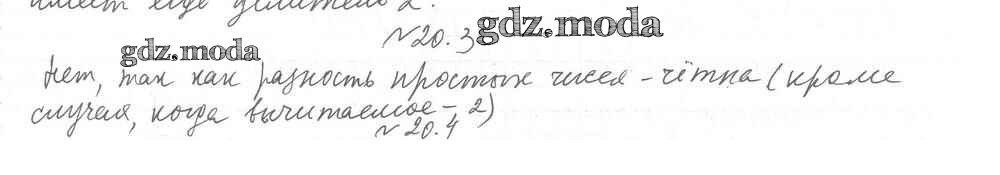 имеет ещё делитель 2.
№20.3 gdz.moda
gdz.moda
Нет, так как разность простых чисел – чётна (кроме
случая, когда вычитаемое – 2)
№20.4